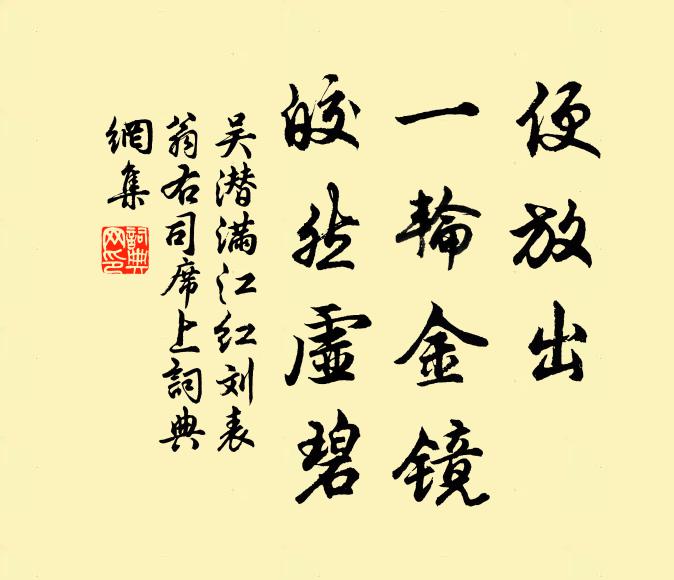 便放出
一輪金鏡
皎然虛碧
吴潜满江红刘表
翁右司席上詞典
網集
詞典網印